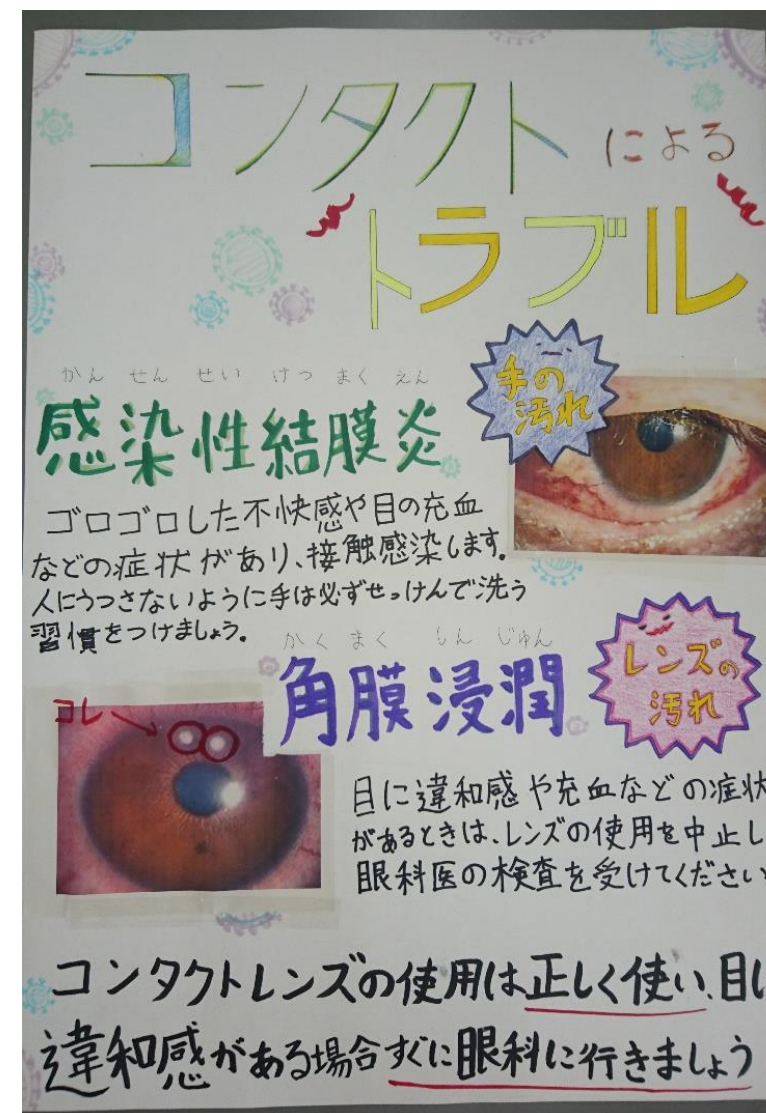 コンタクトによる
トラブル
かんせんせいけつまくえん
感染性結膜炎
手の
汚れ
ゴロゴロした不快感や目の充血
などの症状があり、接触感染します。
人にうつさないように手は必ずせっけんで洗う
習慣をつけましょう。
かくまくしんじゅん
角膜浸潤
レンズの
汚れ
コレ
目に違和感や充血などの症状
があるときは、レンズの使用を中止し
眼科医の検査を受けてください
コンタクトレンズの使用は正しく使い、目に
違和感がある場合すぐに眼科に行きましょう